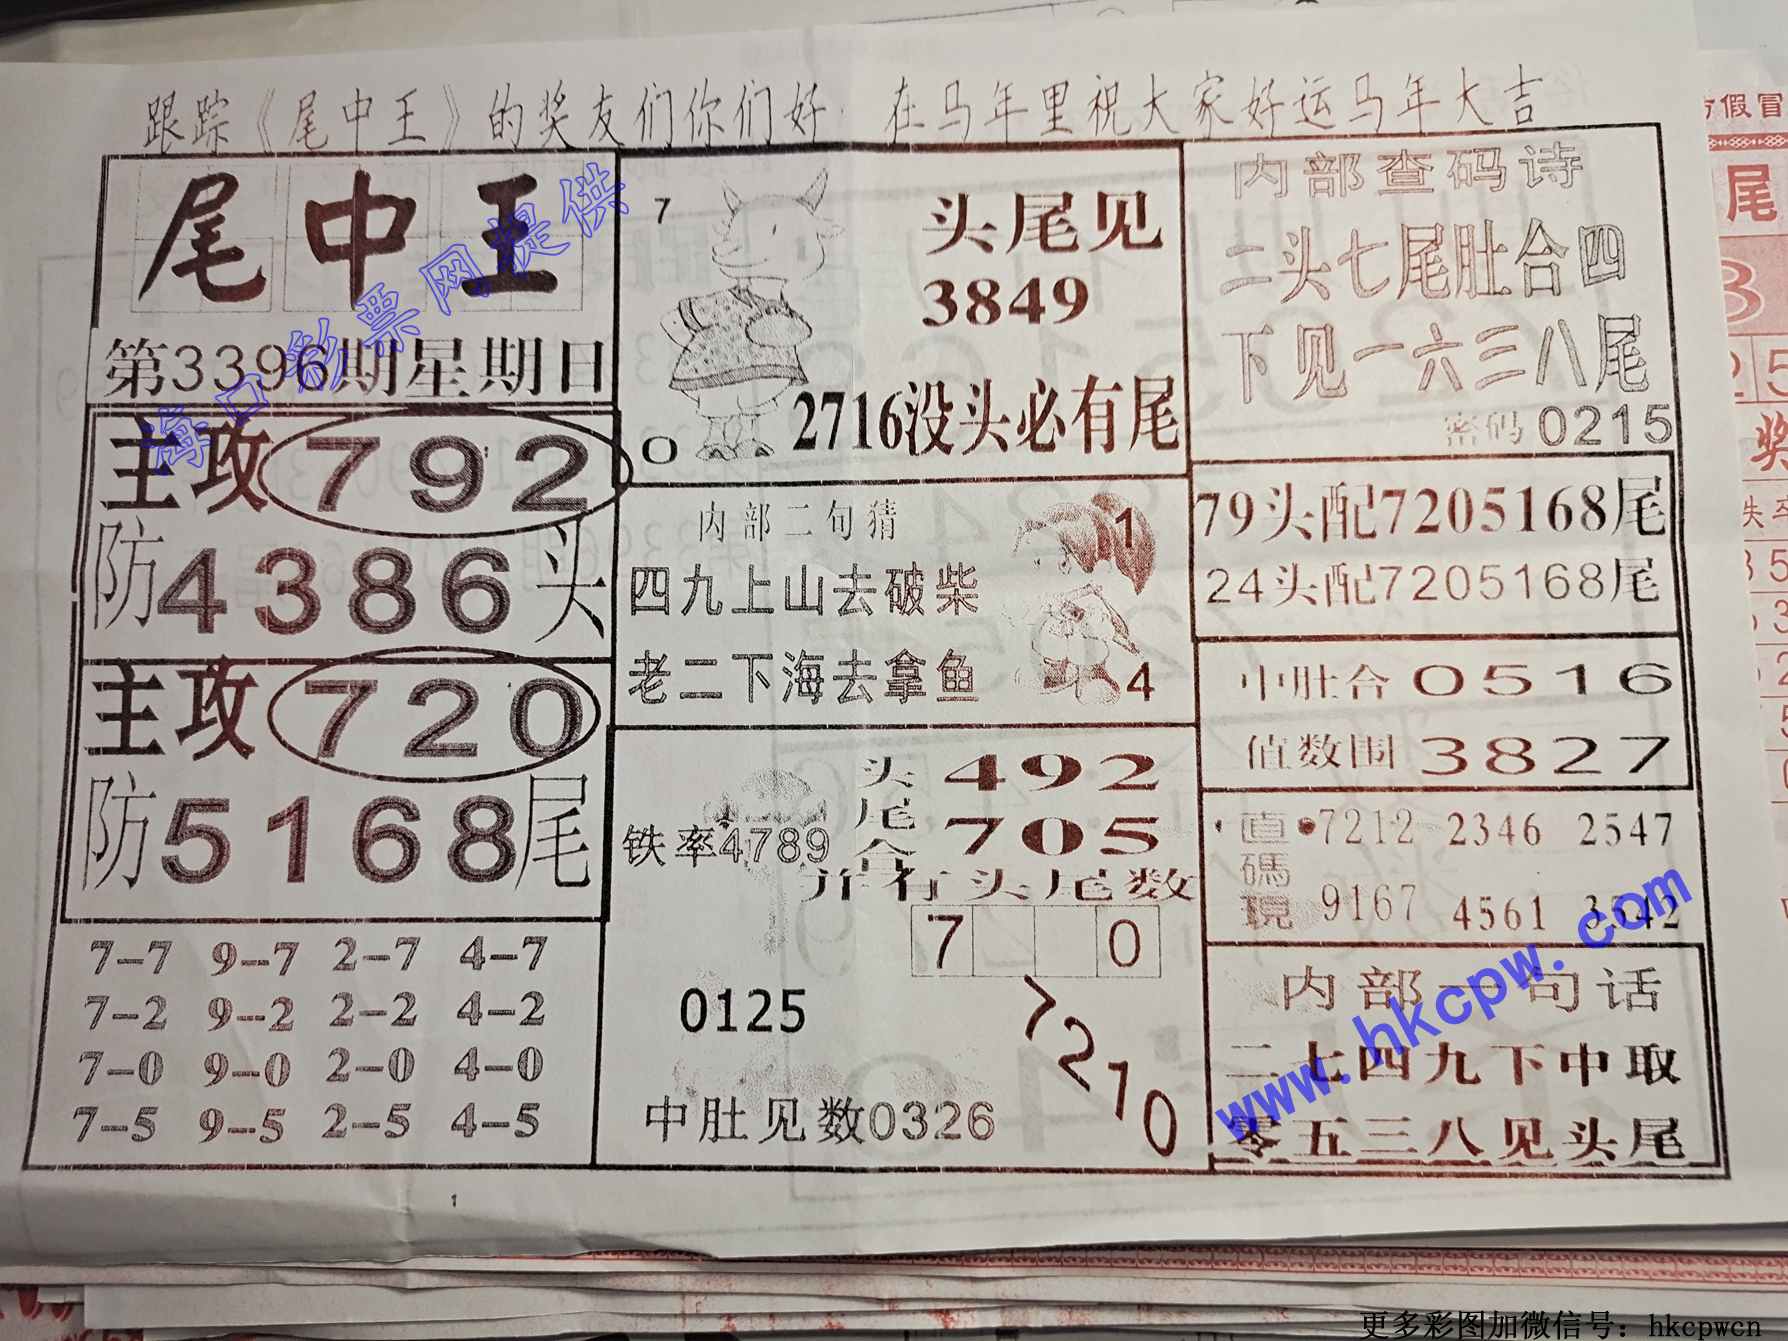 跟踪《尾中王》的奖友们你们好 在马年里祝大家好运马年大吉
尾中王
第3396期星期日
主攻792
防4386头
主攻720
防5168尾
7--7 9--7 2--7 4--7
7--2 9--2 2--2 4--2
7--0 9--0 2--0 4--0
7--5 9--5 2--5 4--5
7
头尾见
3849
0
2716没头必有尾
内部二句猜
1
四九上山去破柴
老二下海去拿鱼
4
头492
尾
合705
铁率4789
并有头尾数
7 0
0125
7210
中肚见数0326
内部查码诗
二头七尾肚合四
下见一六三八尾
密码0215
79头配7205168尾
24头配7205168尾
中肚合0516
值数围3827
直碼現
7212 2346 2547
9167 4561 3542
内部一句话
二七四九下中取
零五三八见头尾
1
海口彩票网提供
www.hkcpw.com
方假冒
尾
3
2 5
奖
铁率
更多彩图加微信号：hkcpwcn